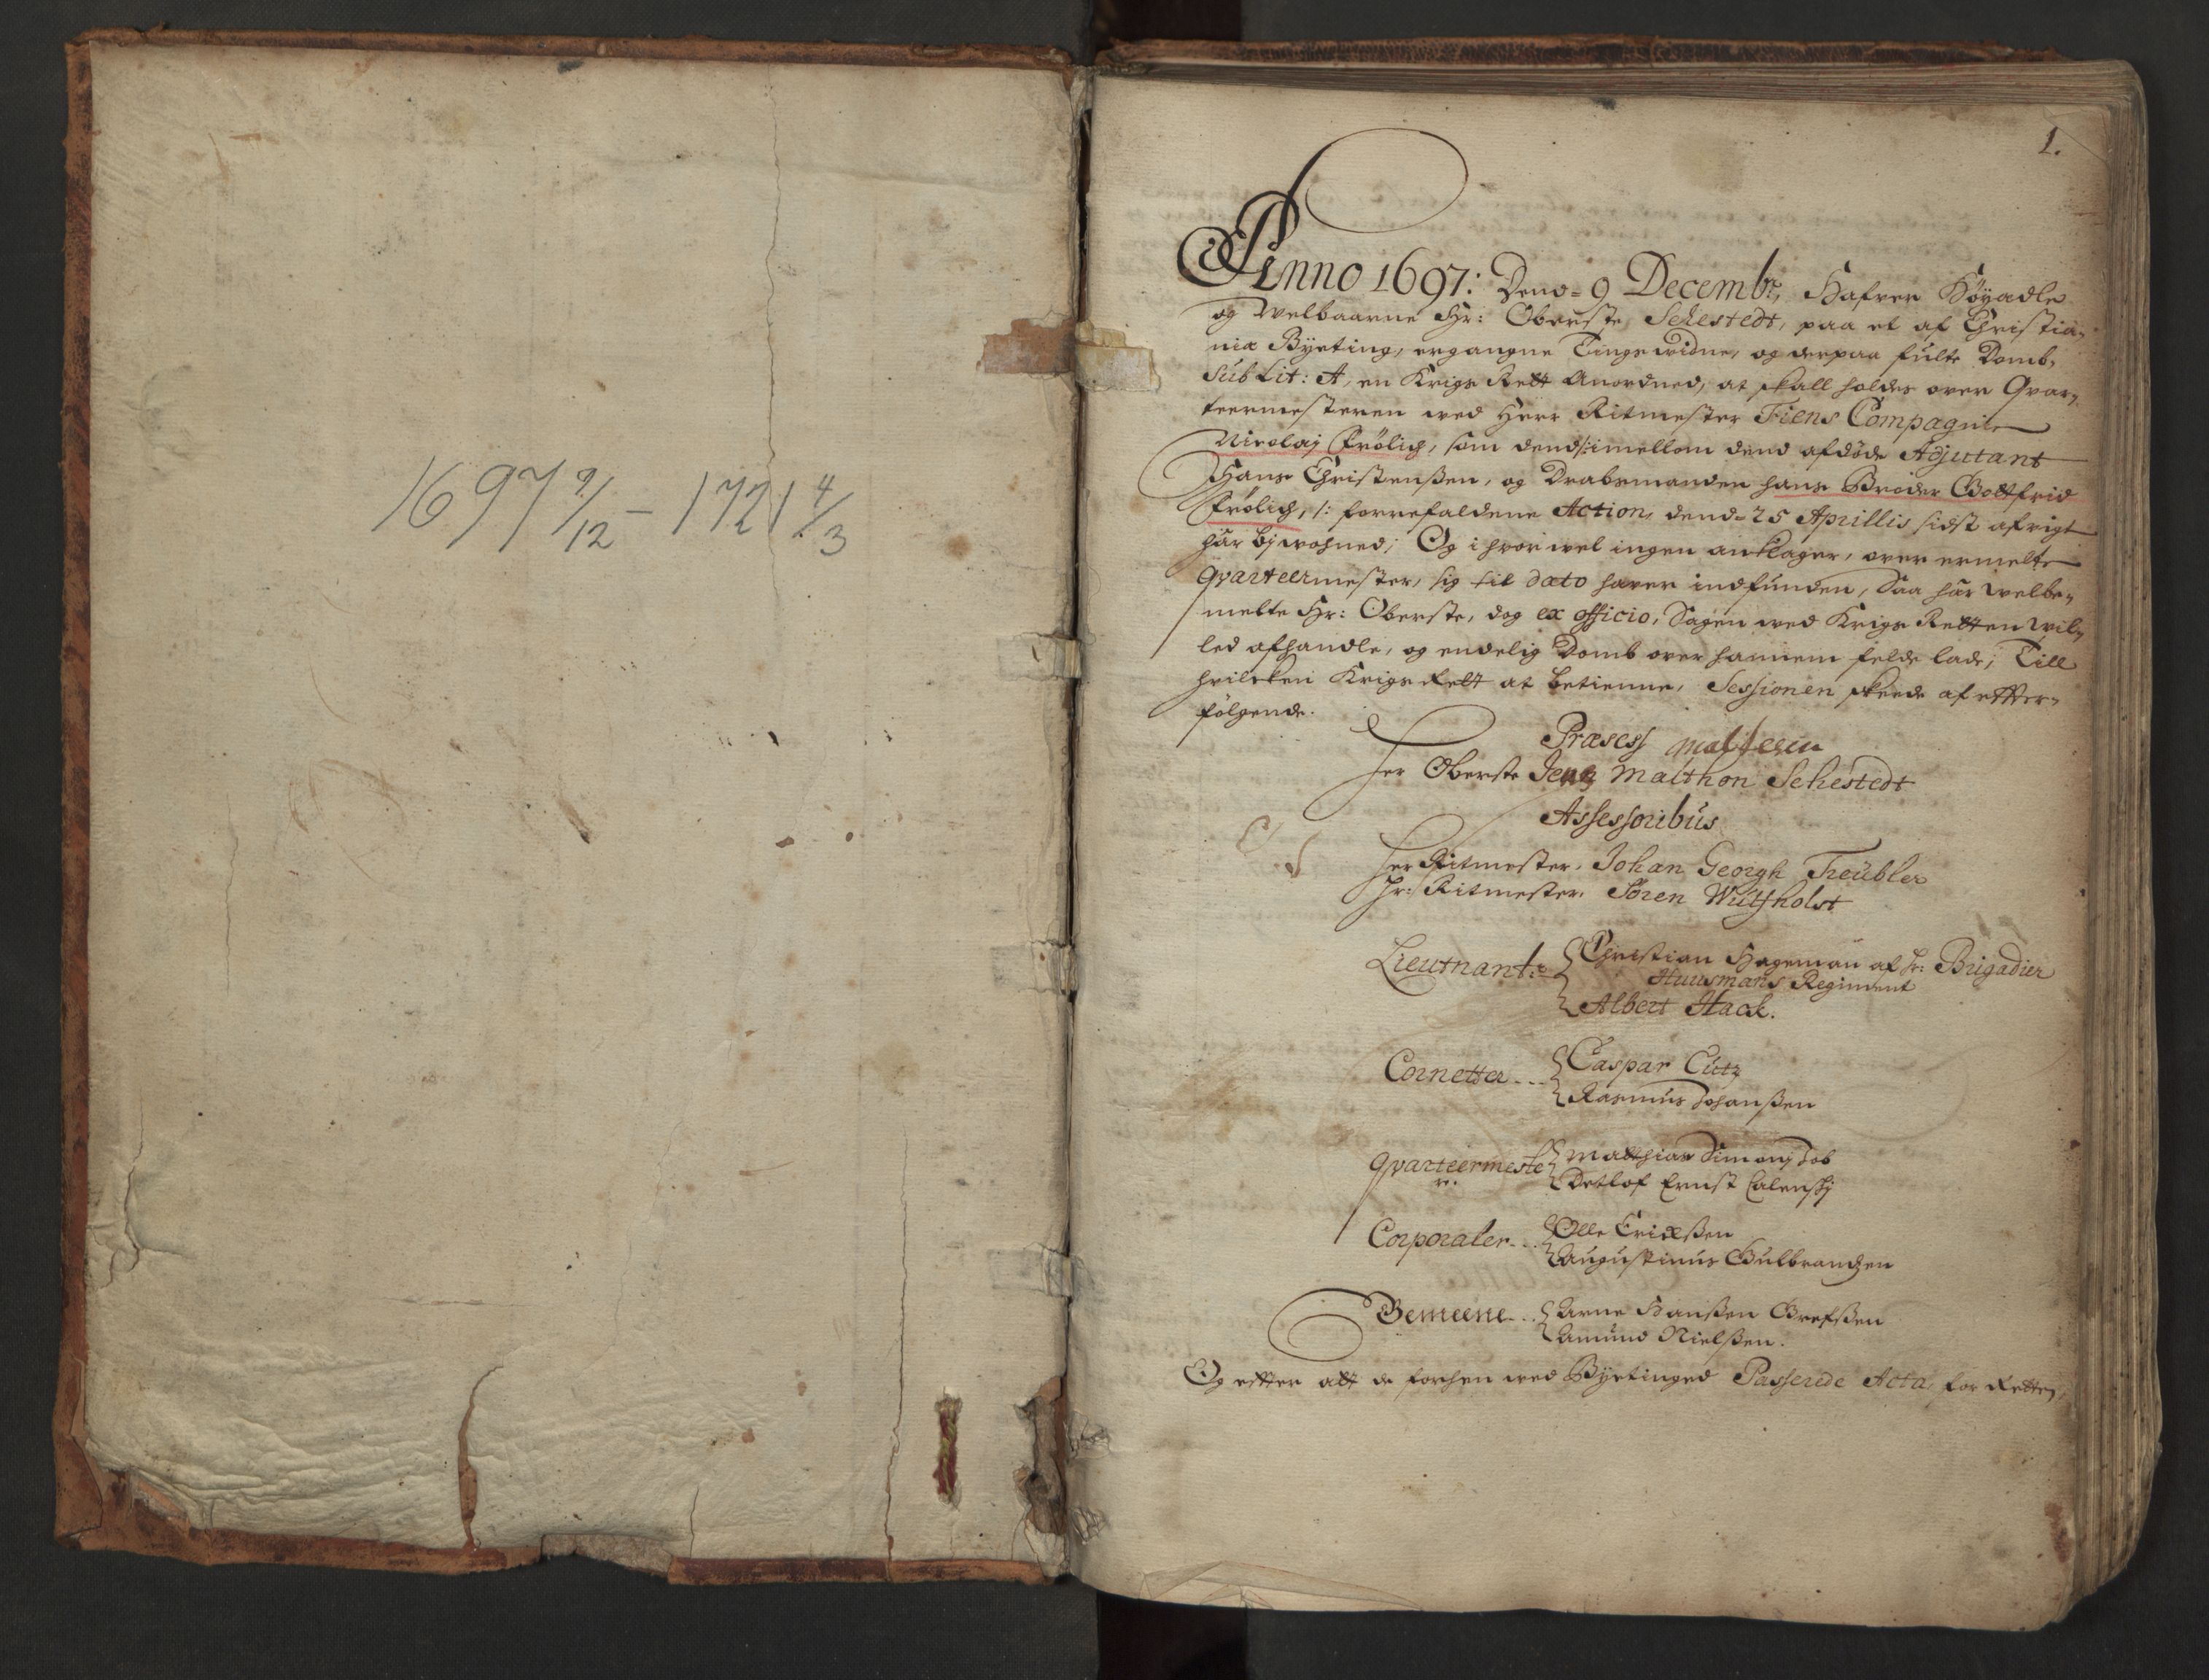 1697 9/12 – 1721 4/3
1.
Anno 1697: Dend= 9 Decembr, Hafver Höyædle
og Welbaarne Hr: Oberste Sehestedt, paa et af Christia-
niæ Byeting, ergangne Tings widne, og derpaa fulte Domb,
Sub Lit: A, en Krigs Rett Anordned, at skall holdes over Qvar-
teermesteren wed Herr Ritmester Fiens Compagnie
Nicolaj Frölich, som dend /: imellom dend afdöde Adjutant
Hans Christenßen, og Drabsmanden hans Broder Gottfrid
Frölich, :/ forrefaldene Action, dend= 25 Aprillis sidst afvigt
hâr bj wohned; Og i hvor vel ingen anklager, over ermelte
Qvarteermester, sig til dato haver indfunden, Saa hâr welbe-
melte Hr: Oberste, dog ex officio, Sagen wed Krigs Retten wil-
led afhandle, og endelig Domb over hannem felde lade; Till
hvilcken Krigs Rett at betienne, Sessionen skeede af effter-
fölgende.
Præsess
Her Oberste Jens Malthon Sehestedt
Assessoribus
Her Ritmester Johan Georgh Treübler
Hr: Ritmester Sören Wülfholst
Lieutnant: Christian Hageman af Hr: Brigadier
Huusmans Regiment
Albert Hack.
Cornetter - - Caspar Cütz
Rasmus Johanßen
Qvarteermeste Matthias Simon Job
r. Detlof Ernst Calenskj
Corporaler - - Olle Erichßen
Augustinus Gulbrandzen
Gemeene - - Arne Hanßen Grefßen
Amund Nielßen.
Og effter att de forhen wed Byetinged Passerede Acta, for Retten,